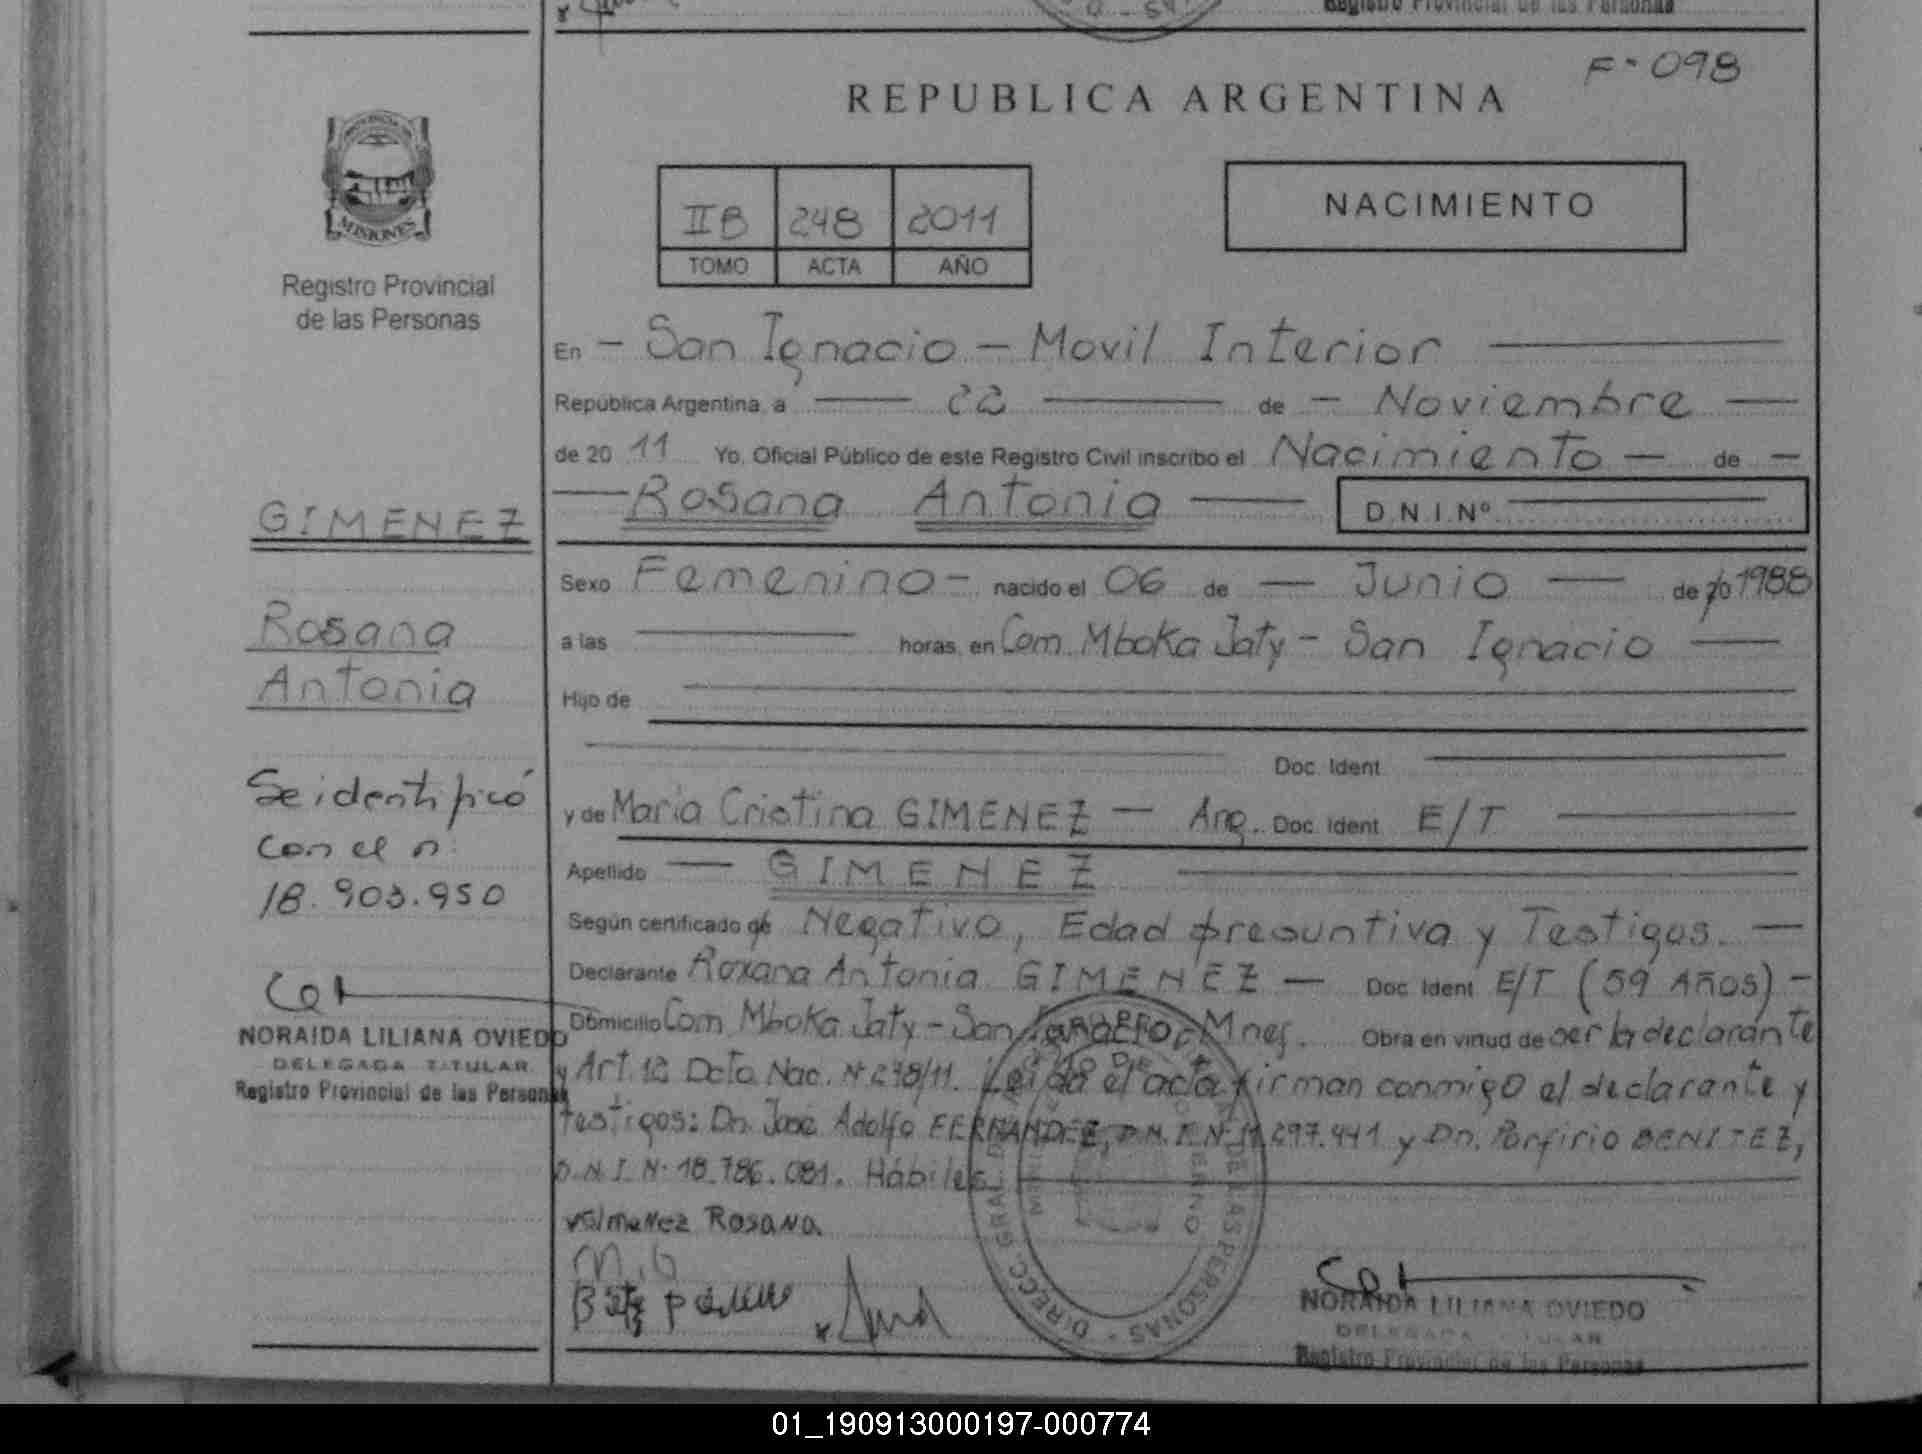 Registro Provincial de las Personas
F-098
REPUBLICA ARGENTINA
PROVINCIA DE
MISIONES
Registro Provincial
de las Personas
II B 248 2011
TOMO ACTA AÑO
NACIMIENTO
En - San Ignacio - Movil Interior
República Argentina, a 22 de - Noviembre
de 20 11 Yo, Oficial Público de este Registro Civil inscribo el Nacimiento - de -
Rosana Antonia D.N.I.Nº
GIMENEZ
Rosana
Antonia
Se identificó
con el n:
18.903.950
NORAIDA LILIANA OVIEDO
DELEGADA TITULAR
Registro Provincial de las Personas
Sexo Femenino - nacido el 06 de - Junio - de 20 1988
a las horas, en Com. Mboka Jaty - San Ignacio
Hijo de
Doc. Ident.
y de Maria Cristina GIMENEZ - Arg. Doc. Ident. E/T
Apellido - GIMENEZ
Según certificado de Negativo, Edad presuntiva y Testigos. -
Declarante Roxana Antonia GIMENEZ - Doc. Ident. E/T (59 Años) -
Domicilio Com. Mboka Jaty - San Ignacio, Mnes. Obra en virtud de ser la declarante
y Art. 12 Dcto. Nac. Nº 278/11. Leída el acta firman conmigo el declarante y
testigos: Dn. Jose Adolfo FERNANDEZ, D.N.I. Nº 11.297.441 y Dn. Porfirio BENITEZ,
D.N.I. Nº 18.786.081. Hábiles.
Gimenez Rosana
M.G
DIRECC. GRAL. DE LAS PERSONAS
NORAIDA LILIANA OVIEDO
DELEGADA TITULAR
Registro Provincial de las Personas
01_190913000197-000774